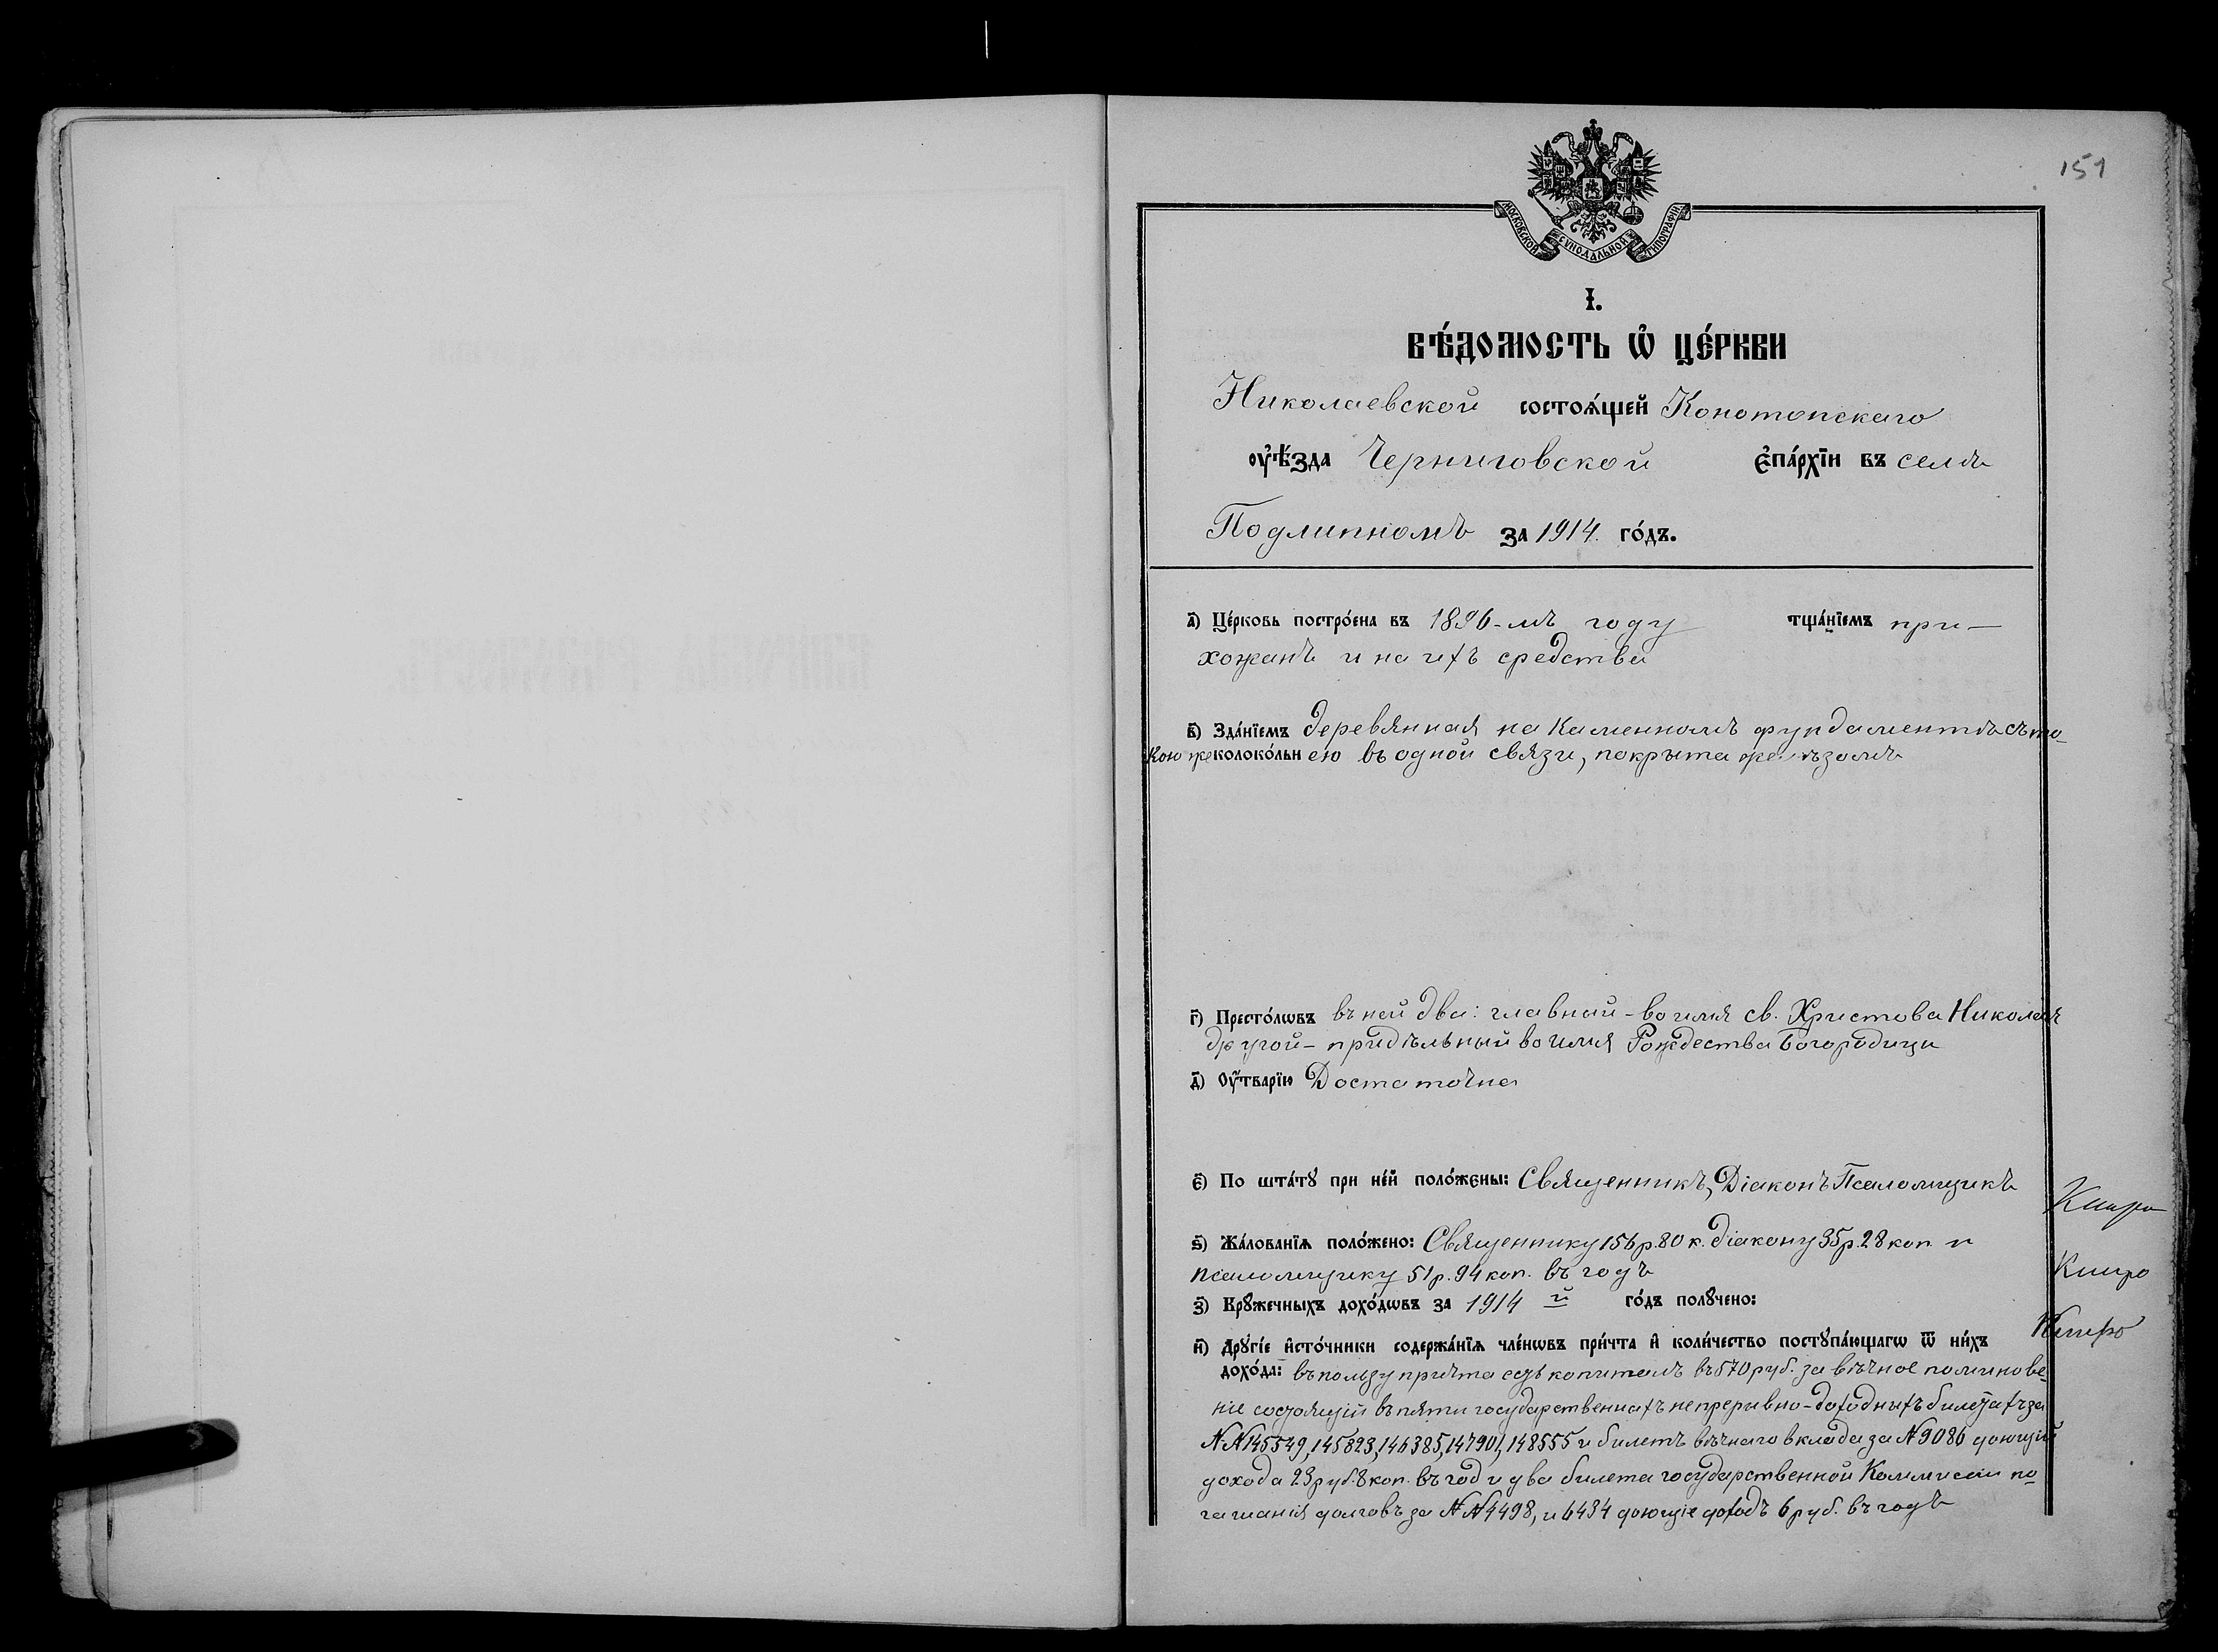 151
МОСКОВСКОЙ СѴНОДАЛЬНОЙ ТИПОГРАФІИ
І.
ВѢ́ДОМОСТЬ Ѡ҆ ЦЕ́РКВИ
Николаевской состоѧ́щей Конотопскаго
ᲂу҆ѣ́зда Черниговской є҆па́рхїи въ селѣ
Подлипномъ за 1914. го́дъ.
а҃) Це́рковь постро́ена въ 1896-мъ году тща́нїемъ при-
хожанъ и на ихъ средства
в҃) Зда́нїемъ деревянная на каменномъ фундаментѣ съ та-
кою же колоко́льнею въ одной связи, покрыта желѣзомъ
г҃) Престо́лѡвъ въ ней два: главный - во имя св. Христова Николая
другой - придѣльный во имя Рождества Богородицы
д҃) Оу҆́тварїю Достаточна
є҃) По шта́тꙋ при не́й поло́жены: Священникъ, Діаконъ Псаломщикъ
ѕ҃) Жа́лованїѧ поло́жено: Священнику 156 р. 80 к. діакону 35 р. 28 коп и
псаломщику 51 р. 94 коп. въ годъ
з҃) Крꙋ́жечныхъ дохо́дѡвъ за 1914 й го́дъ полꙋ́чено:
и҃) Дрꙋгі́е и҆сто́чники содержа́нїѧ чле́нѡвъ при́чта и҆ коли́чество постꙋпа́ющагѡ ѿ ни́хъ
дохо́да: въ пользу причта есть капиталъ въ 570 руб. за вѣчное поминове-
ніе состоящій въ пяти государственныхъ непрерывно-доходныхъ билетахъ за
№№ 145549, 145823, 146385, 147901, 148555 и билетъ вѣчнаго вклада за № 9086 дающій
дохода 23 руб. 8 коп. въ год и два билета государственной Коммиссіи по-
гашанія долговъ за №№ 4498, и 6434 дающіе доходъ 6 руб. въ годъ